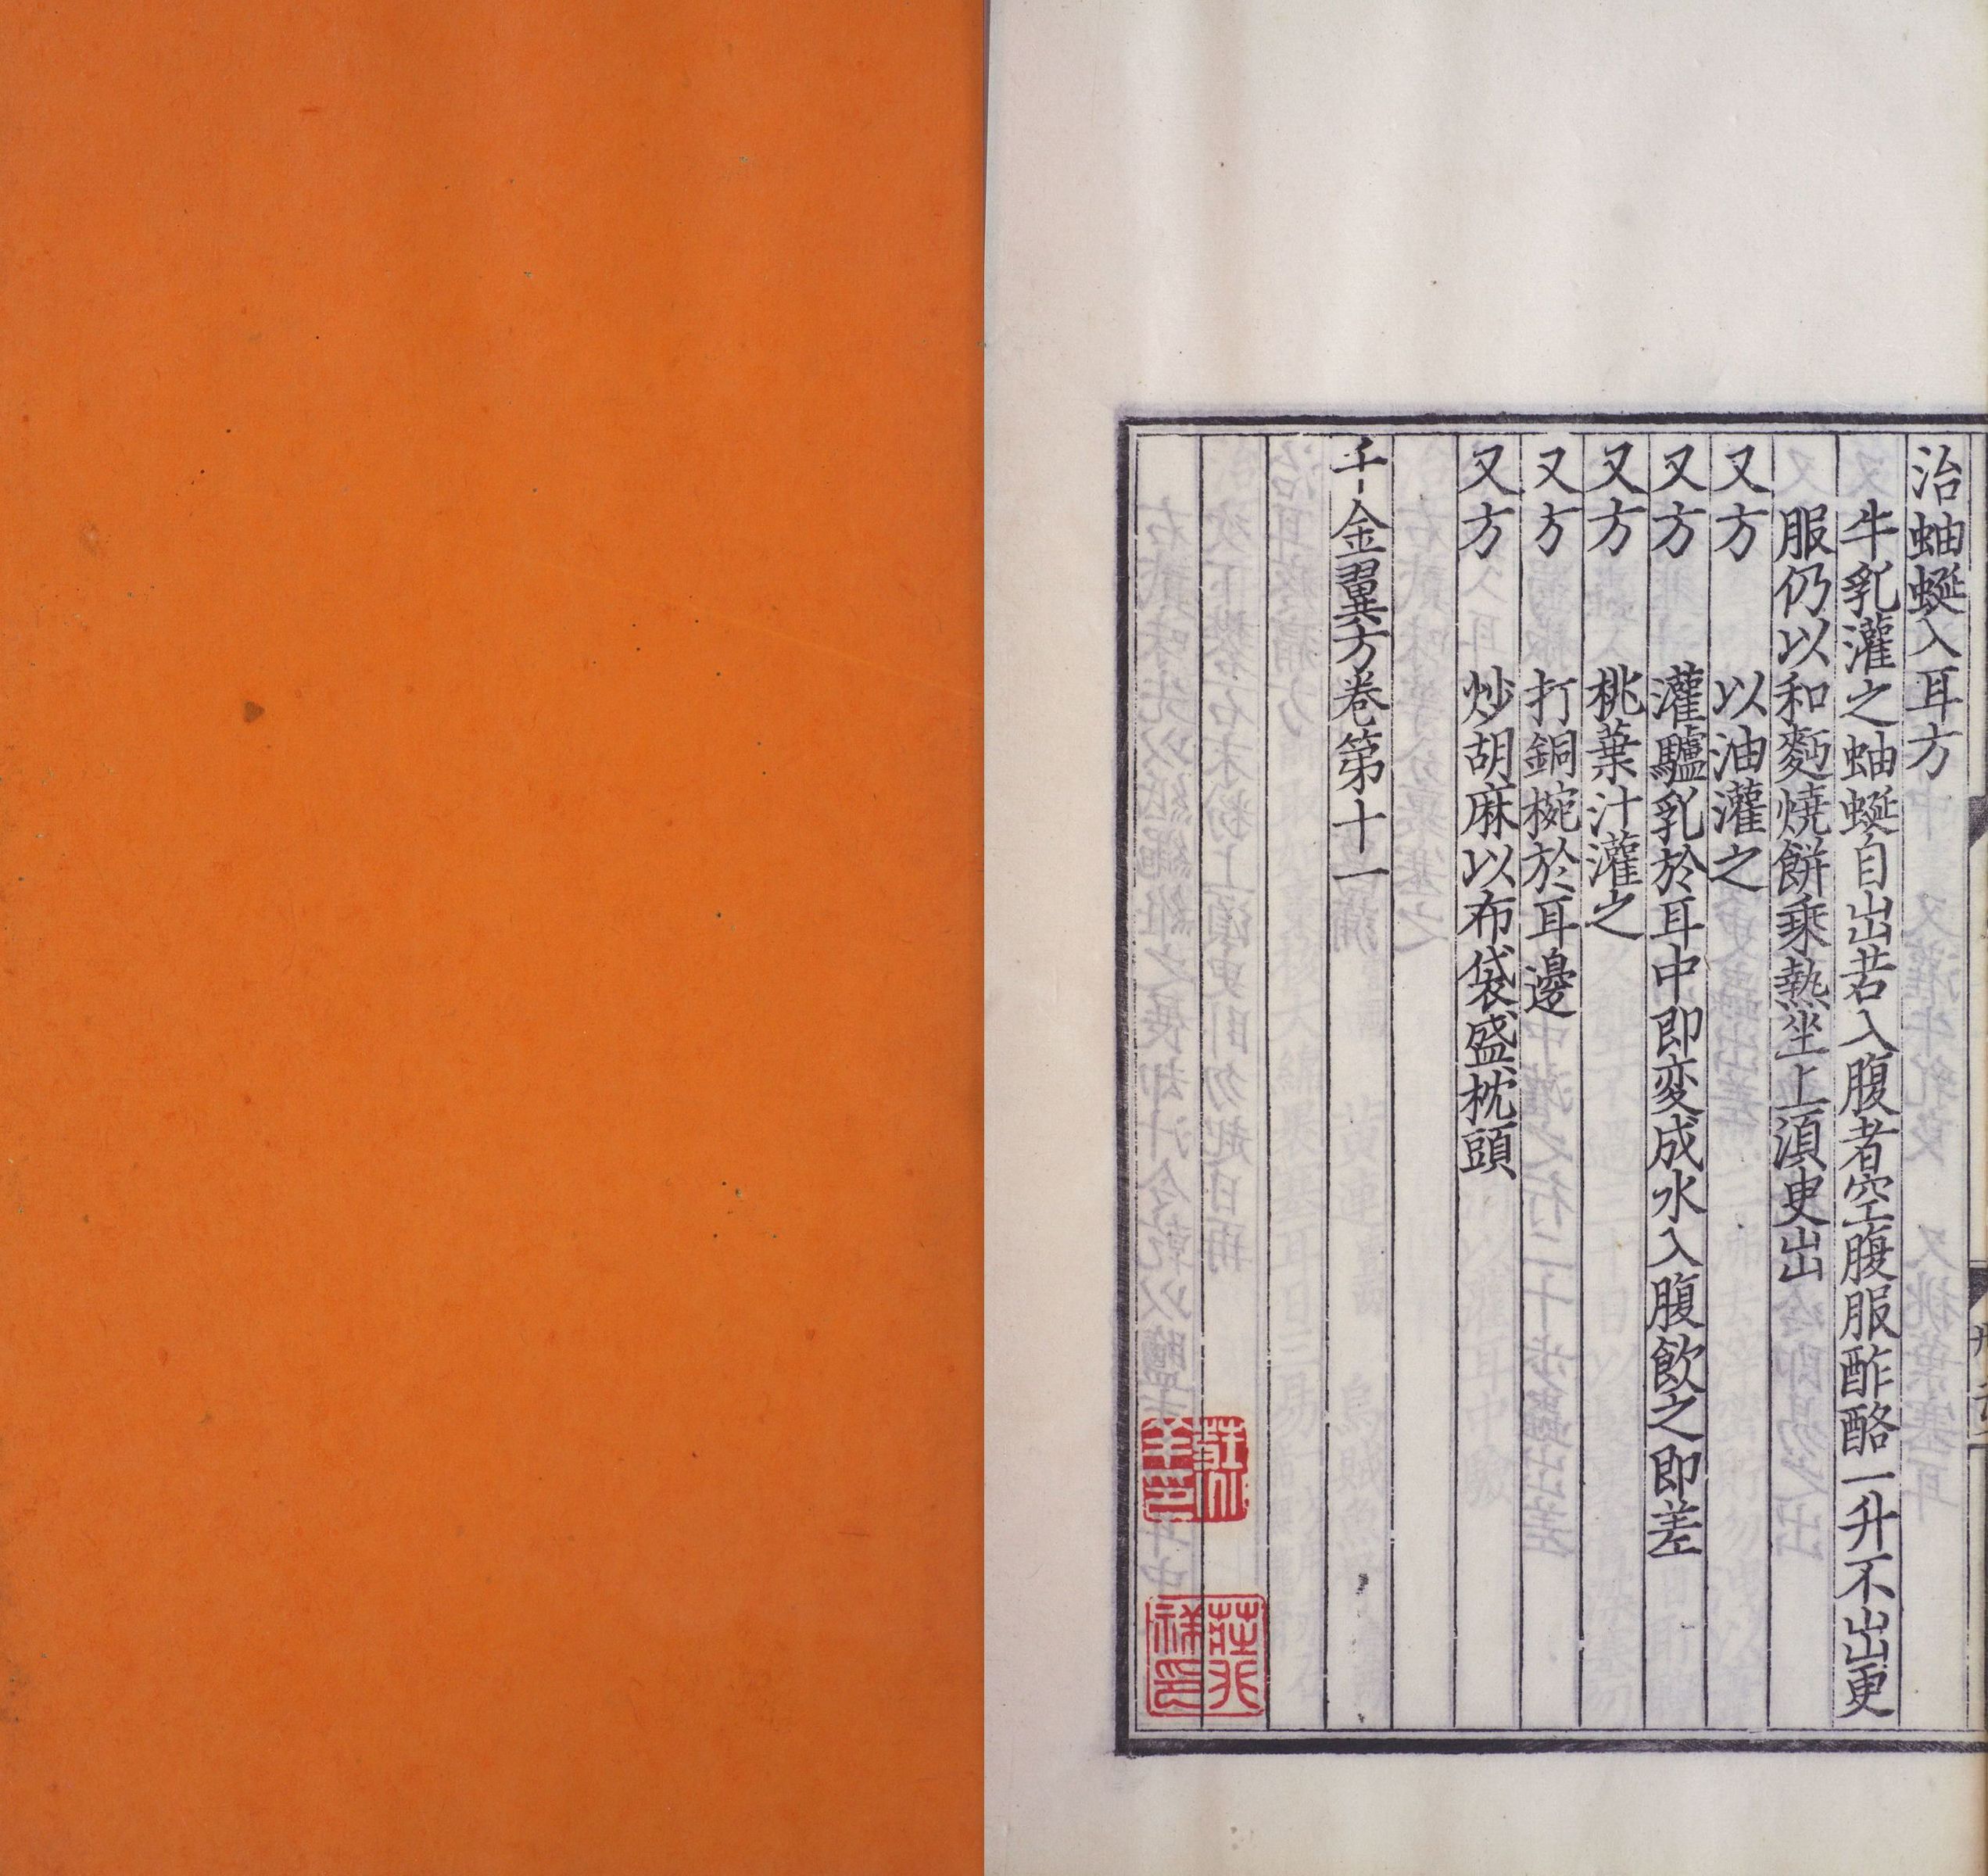 治蚰蜒入耳方
牛乳灌之蚰蜒自出若入腹者空腹服酢酪一升不出更
服仍以和麪燒餅乗熱坐上湏臾出
又方　以油灌之
又方　灌驢乳於耳中即変成水入腹飲之即差
又方　桃葉汁灌之
又方　打銅椀於耳邊
又方　炒胡麻以布袋盛枕頭
千金翼方卷第十一